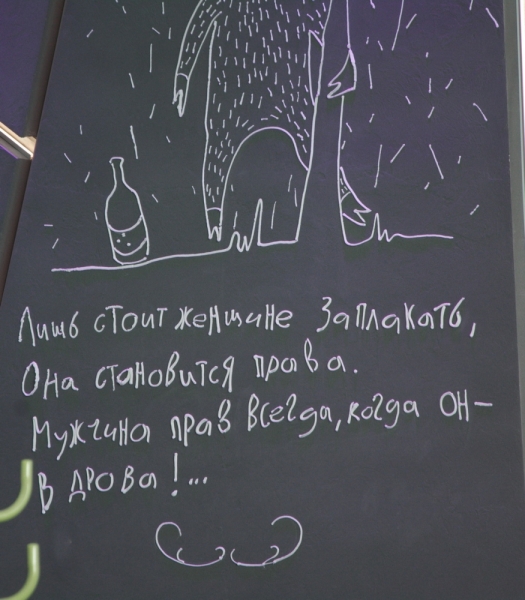 Лишь стоит женщине заплакать,
Она становится права.
Мужчина прав всегда, когда он –
в дрова!...